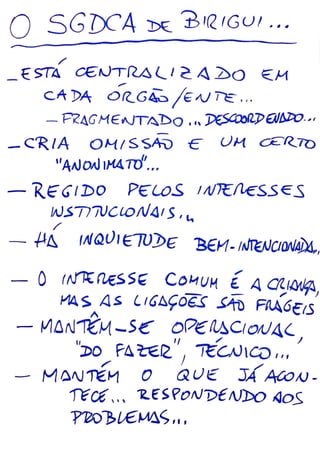 O SGDCA DE BIRIGUI...
- ESTÁ CENTRALIZADO EM
CADA ÓRGÃO/ENTE...
- FRAGMENTADO... DESCOORDENADO...
- CRIA OMISSÃO E UM CERTO
"ANONIMATO"...
- REGIDO PELOS INTERESSES
INSTITUCIONAIS...
- HÁ INQUIETUDE BEM-INTENCIONADA...
- O INTERESSE COMUM É A CRIANÇA,
MAS AS LIGAÇÕES SÃO FRÁGEIS
- MANTÊM-SE OPERACIONAL,
"DO FAZER", TÉCNICO...
- MANTÉM O QUE JÁ ACON-
TECE... RESPONDENDO AOS
PROBLEMAS...